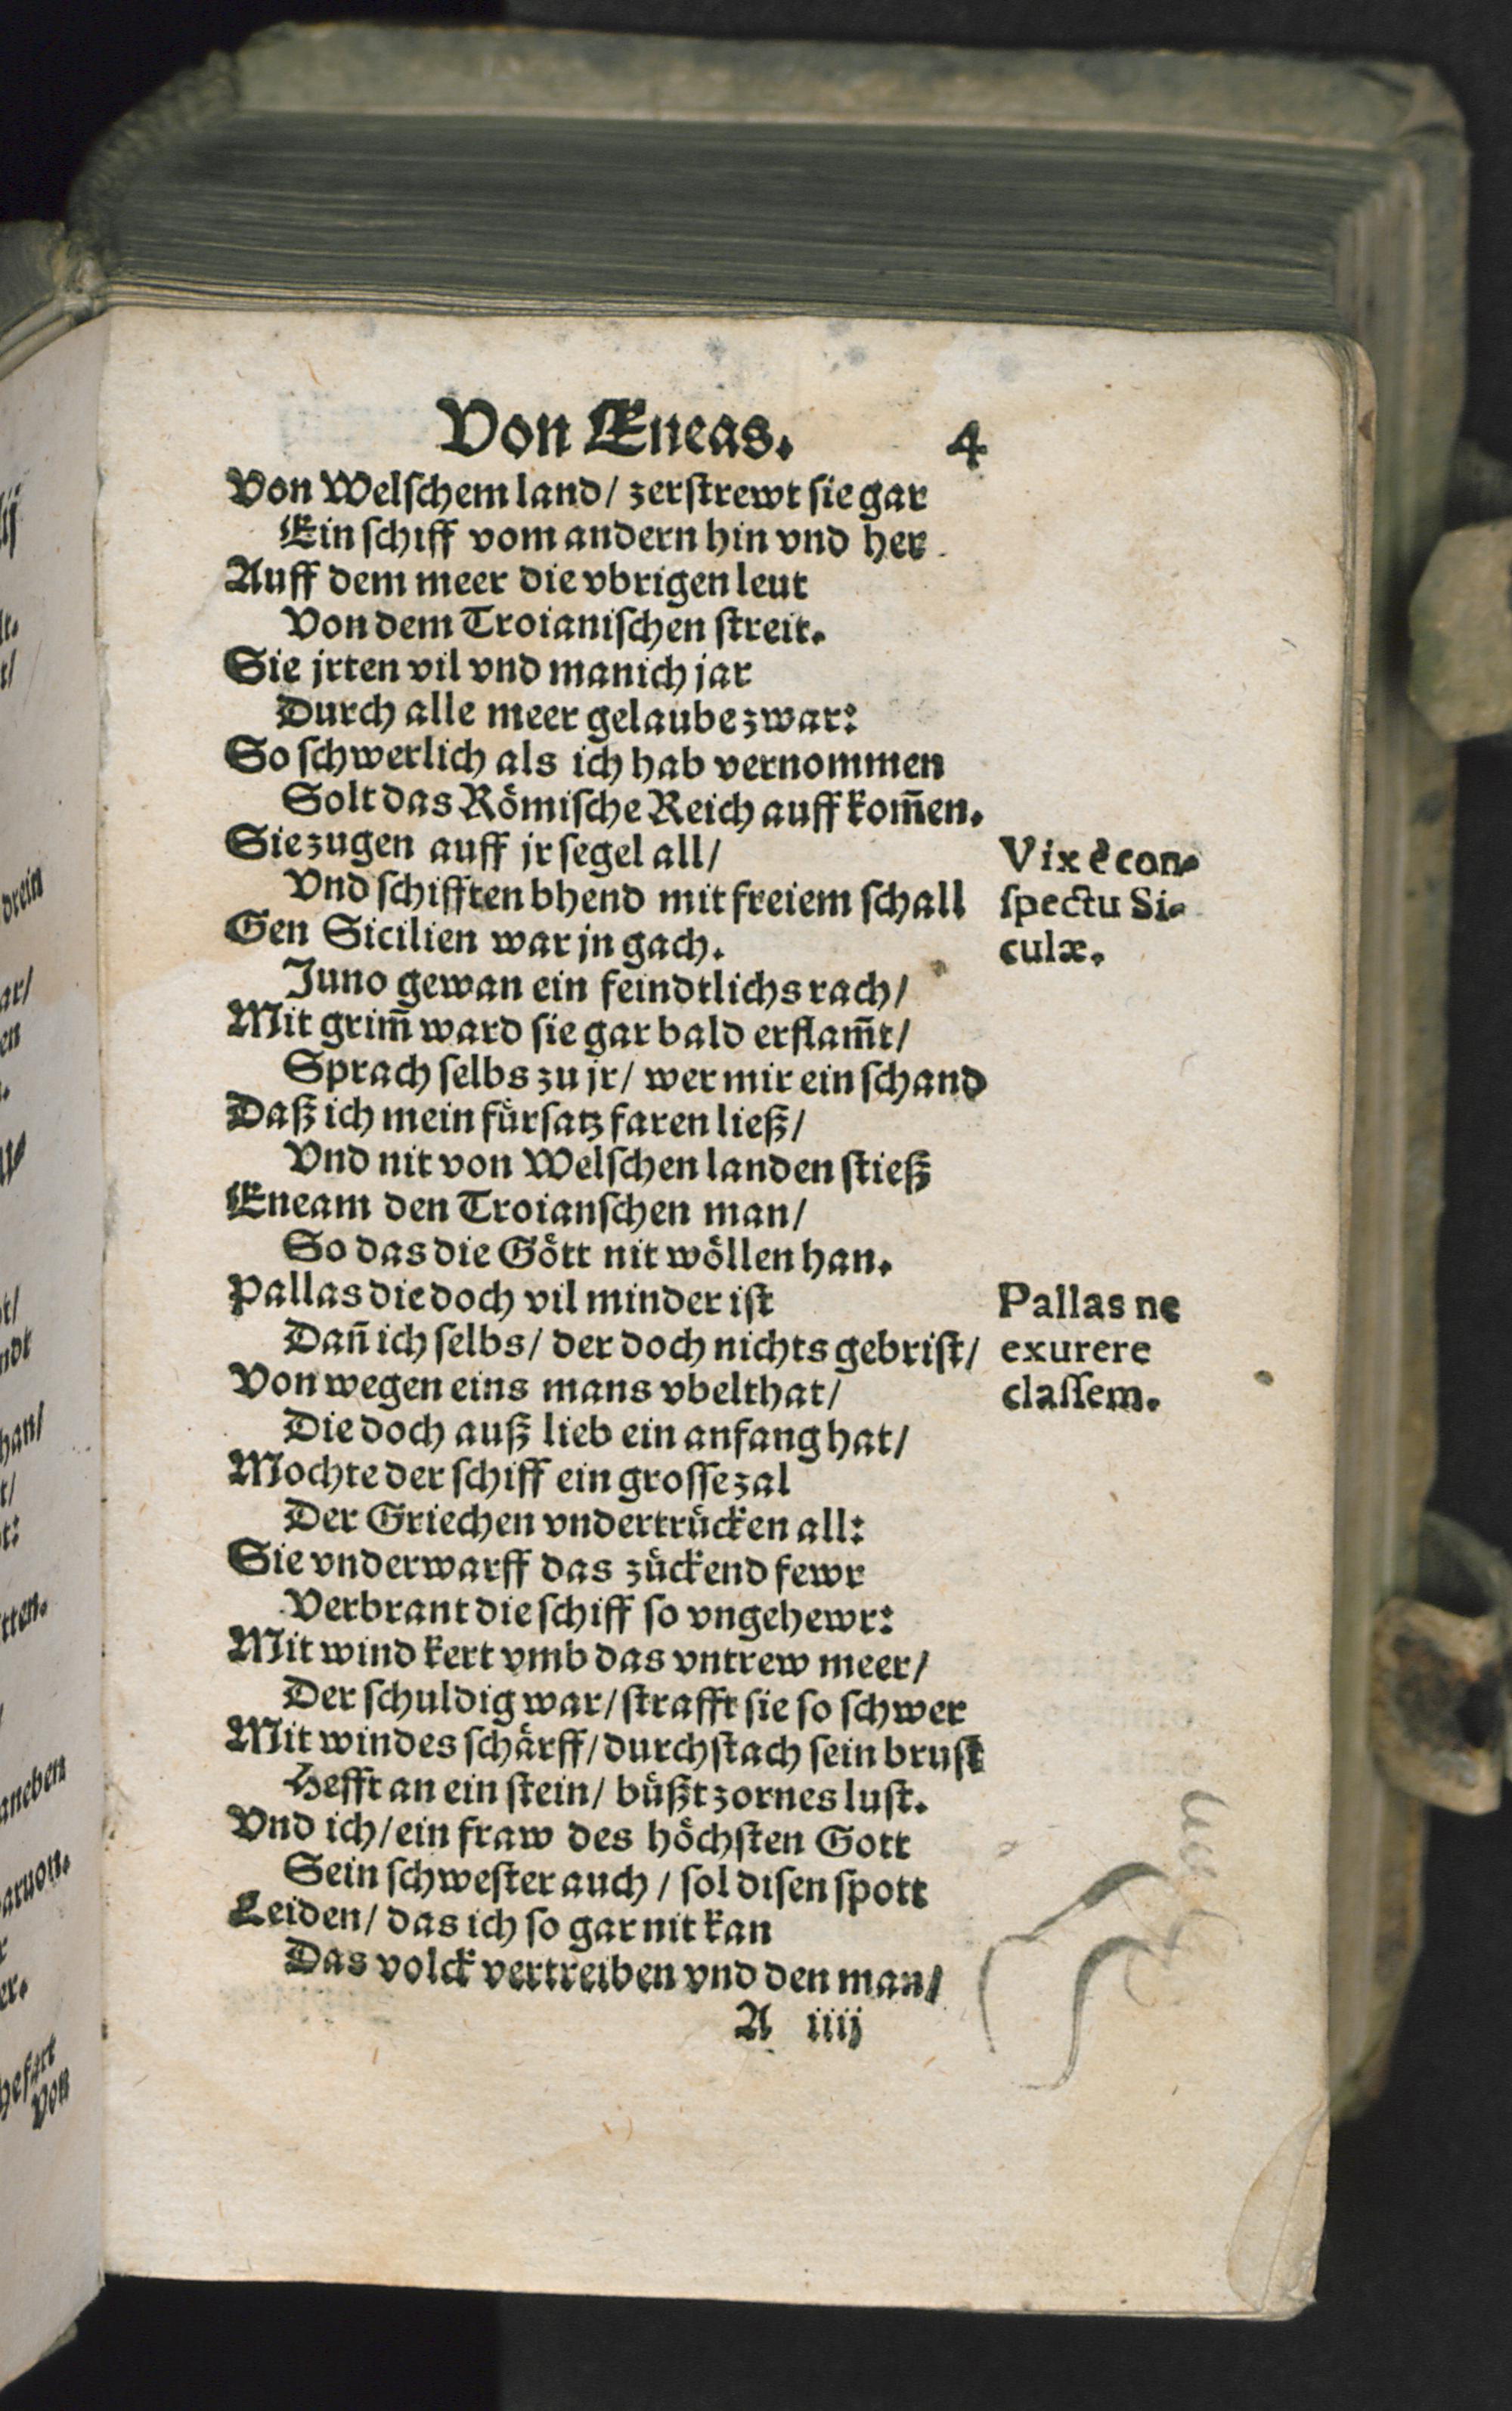 Von Eneas. 4
Von Welſchem land / zerſtrewt ſie gar
Ein ſchiff vom andern hin vnd her
Auff dem meer die vbrigen leut
Von dem Troianiſchen ſtreit.
Sie jrten vil vnd manich jar
Durch alle meer gelaube zwar:
So ſchwerlich als ich hab vernommen
Solt das Roͤmiſche Reich auff kom̃en.
Sie zugen auff jr ſegel all /
Vnd ſchifften bhend mit freiem ſchall
Gen Sicilien war jn gach.
Vix è con-
ſpectu Si-
culæ.
Juno gewan ein feindtlichs rach /
Mit grim̃ ward ſie gar bald erflam̃t /
Sprach ſelbs zu jr / wer mir ein ſchand
Daß ich mein fuͤrſatz faren ließ /
Vnd nit von Welſchen landen ſtieß
Eneam den Troianſchen man /
So das die Goͤtt nit woͤllen han.
Pallas die doch vil minder iſt
Dañ ich ſelbs / der doch nichts gebriſt /
Von wegen eins mans vbelthat /
Pallas ne
exurere
claſſem.
Die doch auß lieb ein anfang hat /
Mochte der ſchiff ein groſſe zal
Der Griechen vndertruͤcken all:
Sie vnderwarff das zuͤckend fewr
Verbrant die ſchiff ſo vngehewr:
Mit wind kert vmb das vntrew meer /
Der ſchuldig war / ſtrafft ſie ſo ſchwer
Mit windes ſchaͤrff / durchſtach ſein bruſt
Hefft an ein ſtein / buͤßt zornes luſt.
Vnd ich / ein fraw des hoͤchſten Gott
Sein ſchweſter auch / ſol diſen ſpott
Leiden / das ich ſo gar nit kan
Das volck vertreiben vnd den man /
A iiij